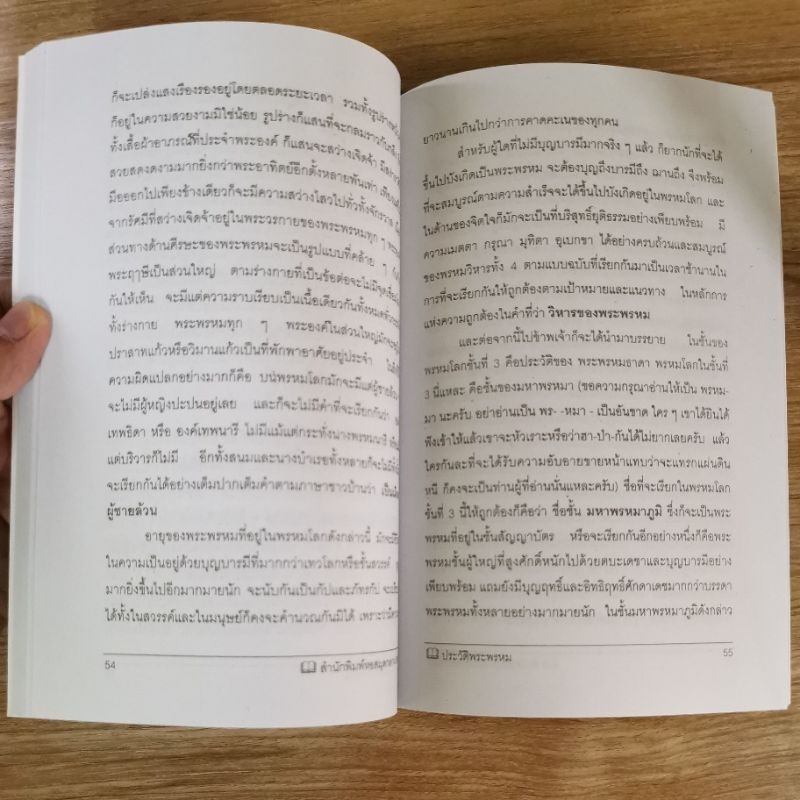 ก็จะเปล่งแสงเรืองรองอยู่โดยตลอดระยะเวลา รวมทั้งรูปร่าง
ก็อยู่ในความสวยงามมิใช่น้อย รูปร่างก็แสนที่จะกลมราวกับ
ทั้งเสื้อผ้าอาภรณ์ที่ประจำพระองค์ ก็แสนจะสว่างเจิดจ้า
สวยสดงดงามมากยิ่งกว่าพระอาทิตย์อีกตั้งหลายพันเท่า เพียง
มือออกไปเพียงข้างเดียวก็จะมีความสว่างไสวไปทั่วทั้งจักรวาล
จากรัศมีที่สว่างเจิดจ้าอยู่ในพระวรกายของพระพรหมทุก ๆ
ส่วนทางด้านศีรษะของพระพรหมจะเป็นรูปแบบที่คล้าย ๆ
พระฤๅษีเป็นส่วนใหญ่ ตามร่างกายที่เป็นข้อต่อจะไม่มี
กันให้เห็น จะมีแต่ความราบเรียบเป็นเนื้อเดียวกันทั้งหมด
ทั้งร่างกาย พระพรหมทุก ๆ พระองค์ในส่วนใหญ่มักจะ
ปราสาทแก้วหรือวิมานแก้วเป็นที่พักพาอาศัยอยู่ประจำ
ความผิดแปลกอย่างมากก็คือ บนพรหมโลกมักจะมีแต่ผู้ชาย
จะไม่มีผู้หญิงปะปนอยู่เลย และก็จะไม่มีคำที่จะเรียกกันว่า
เทพธิดา หรือ องค์เทพนารี ไม่มีแม้แต่กระทั่งนางพรหมนารี
แต่บริวารก็ไม่มี อีกทั้งสนมและนางบำเรอทั้งหลายก็จะไม่มี
จะเรียกกันได้อย่างเต็มปากเต็มคำตามภาษาชาวบ้านว่า
ผู้ชายล้วน
อายุของพระพรหมที่อยู่ในพรหมโลกดังกล่าวนี้ มักจะ
ในความเป็นอยู่ด้วยบุญบารมีที่มากกว่าเทวโลกหรือชั้นสวรรค์
มากยิ่งขึ้นไปอีกมากมายนัก จะนับกันเป็นกัปและภัทรกัป
ได้ทั้งในสวรรค์และในมนุษย์ก็คงจะคำนวณกันมิได้ เพราะ
54
สำนักพิมพ์หอสมุดกลาง
ยาวนานเกินไปกว่าการคาดคะเนของทุกคน
สำหรับผู้ใดที่ไม่มีบุญบารมีมากจริง ๆ แล้ว ก็ยากนักที่จะได้
ขึ้นไปบังเกิดเป็นพระพรหม จะต้องบุญถึงบารมีถึง ฌานถึง จึงพร้อม
ที่จะสมบูรณ์ตามความสำเร็จจะได้ขึ้นไปบังเกิดอยู่ในพรหมโลก และ
ในด้านของจิตใจก็มักจะเป็นที่บริสุทธิ์ยุติธรรมอย่างเพียบพร้อม มี
ความเมตตา กรุณา มุทิตา อุเบกขา ได้อย่างครบถ้วนและสมบูรณ์
ของพรหมวิหารทั้ง 4 ตามแบบฉบับที่เรียกกันมาเป็นเวลาช้านานใน
การที่จะเรียกกันให้ถูกต้องตามเป้าหมายและแนวทาง ในหลักการ
แห่งความถูกต้องในคำที่ว่า วิหารของพระพรหม
และต่อจากนี้ไปข้าพเจ้าก็จะได้นำมาบรรยาย ในชั้นของ
พรหมโลกชั้นที่ 3 คือประวัติของ พระพรหมธาดา พรหมโลกในชั้นที่
3 นี้แหละ คือชั้นของมหาพรหมา (ขอความกรุณาอ่านให้เป็น พรหม-
มา นะครับ อย่าอ่านเป็น พร- -หมา - เป็นอันขาด ใคร ๆ เขาได้ยินได้
ฟังเข้าให้แล้วเขาจะหัวเราะหรือว่าฮา-ป่า-กันได้ไม่ยากเลยครับ แล้ว
ใครกันละที่จะได้รับความอับอายขายหน้าแทบว่าจะแทรกแผ่นดิน
หนี ก็คงจะเป็นท่านผู้ที่อ่านนั่นแหละครับ) ชื่อที่จะเรียกในพรหมโลก
ชั้นที่ 3 นี้ให้ถูกต้องก็คือว่า ชื่อชั้น มหาพรหมาภูมิ ซึ่งก็จะเป็นพระ
พรหมที่อยู่ในชั้นสัญญาบัตร หรือจะเรียกกันอีกอย่างหนึ่งก็คือพระ
พรหมชั้นผู้ใหญ่ที่สูงศักดิ์หนักไปด้วยตบะเดชาและบุญบารมีอย่าง
เพียบพร้อม แถมยังมีบุญฤทธิ์และอิทธิฤทธิ์ศักดาเดชมากกว่าบรรดา
พระพรหมทั้งหลายอย่างมากมายนัก ในชั้นมหาพรหมาภูมิดังกล่าว
ประวัติพระพรหม
55